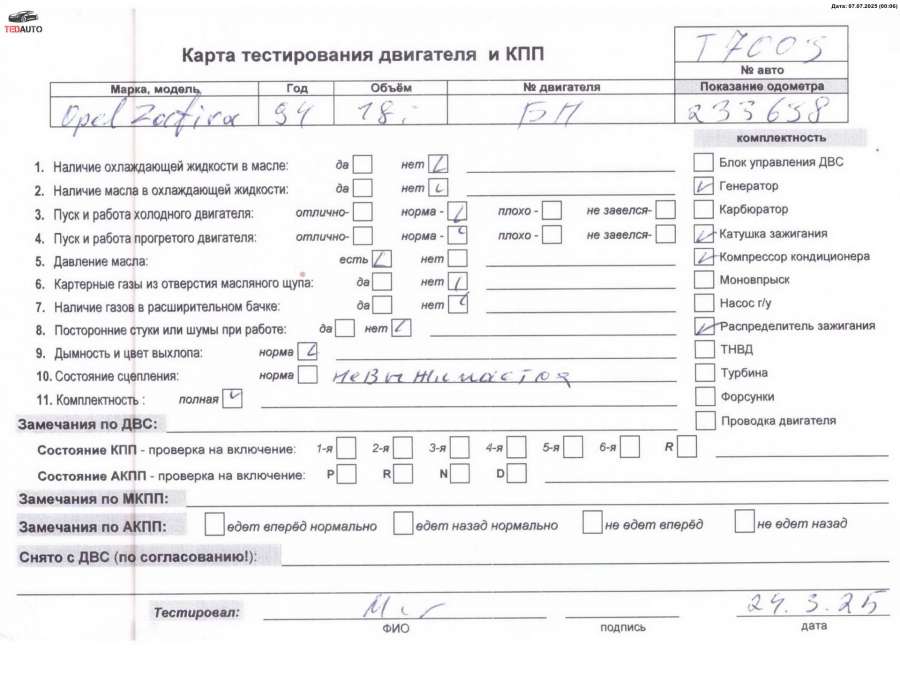 Дата: 07.07.2025 (00:06)
TEDAUTO
Карта тестирования двигателя и КПП
T7003
№ авто
Марка, модель Год Объём № двигателя Показание одометра
Opel Zafira 94 18i БН 233658
комплектность
1. Наличие охлаждающей жидкости в масле: да нет
2. Наличие масла в охлаждающей жидкости: да нет
3. Пуск и работа холодного двигателя: отлично- норма - плохо - не завелся-
4. Пуск и работа прогретого двигателя: отлично- норма - плохо - не завелся-
5. Давление масла: есть нет
6. Картерные газы из отверстия масляного щупа: да нет
7. Наличие газов в расширительном бачке: да нет
8. Посторонние стуки или шумы при работе: да нет
9. Дымность и цвет выхлопа: норма
10. Состояние сцепления: норма
11. Комплектность : полная
Блок управления ДВС
Генератор
Карбюратор
Катушка зажигания
Компрессор кондиционера
Моновпрыск
Насос г/у
Распределитель зажигания
ТНВД
Турбина
Форсунки
Проводка двигателя
Замечания по ДВС:
Состояние КПП - проверка на включение: 1-я 2-я 3-я 4-я 5-я 6-я R
Состояние АКПП - проверка на включение: P R N D
Замечания по МКПП:
Замечания по АКПП: едет вперёд нормально едет назад нормально не едет вперёд не едет назад
Снято с ДВС (по согласованию!):
Тестировал: 24.3.25
ФИО подпись дата